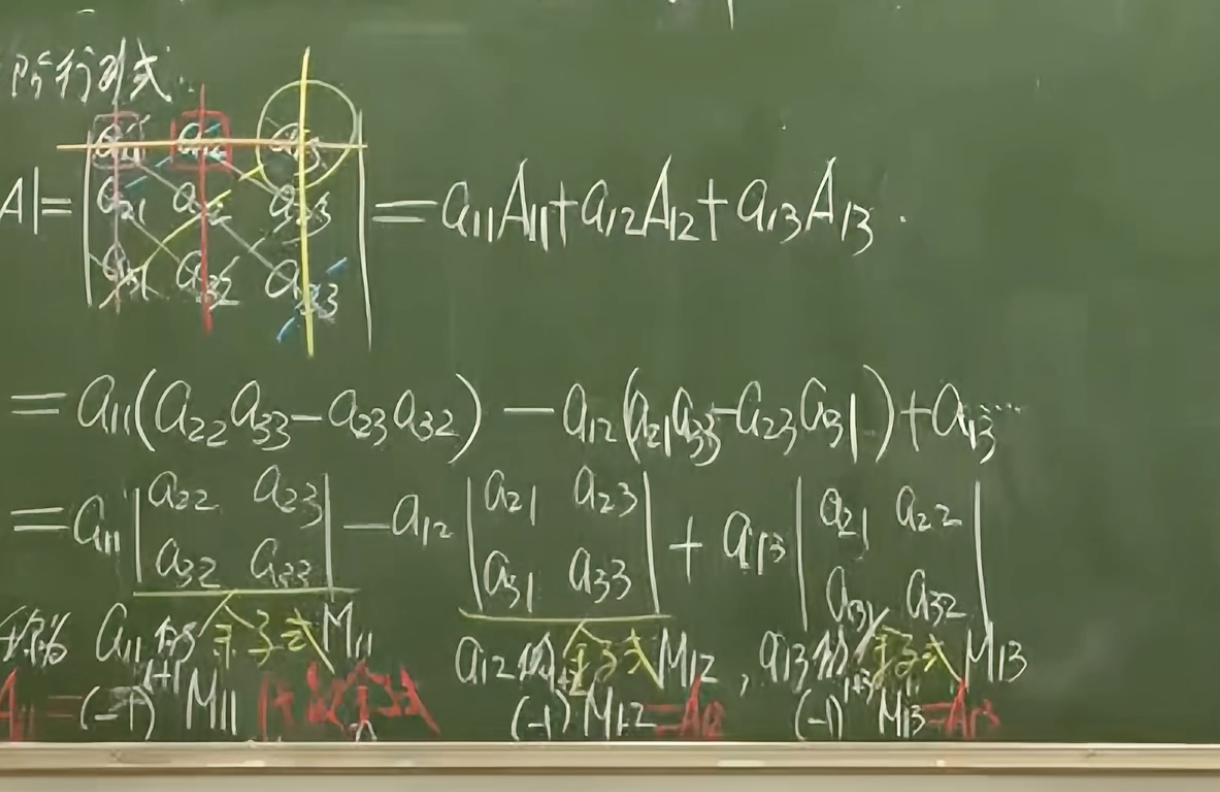 阶行列式
|A|=
a11 a12 a13
a21 a22 a23
a31 a32 a33
=a11A11+a12A12+a13A13.
=a11(a22a33-a23a32)-a12(a21a33-a23a31)+a13...
=a11|a22 a23|-a12|a21 a23|+a13|a21 a22|
|a32 a33| |a31 a33| |a31 a32|
称 a11的余子式M11 a12的余子式M12,a13的余子式M13
A11=(-1)^{1+1}M11 代数余子式 (-1)^{1+2}M12=A12 (-1)^{1+3}M13=A13